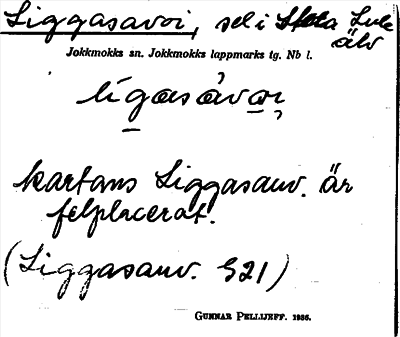 Liggasavoi, sel i Stora Lule
älv
Jokkmokks sn. Jokkmokks lappmarks tg. Nb l.
lígasávɑi
kartans Liggasauv. är
felplacerat.
(Liggasauv. S21)
GUNNAR PELLIJEFF. 1936.